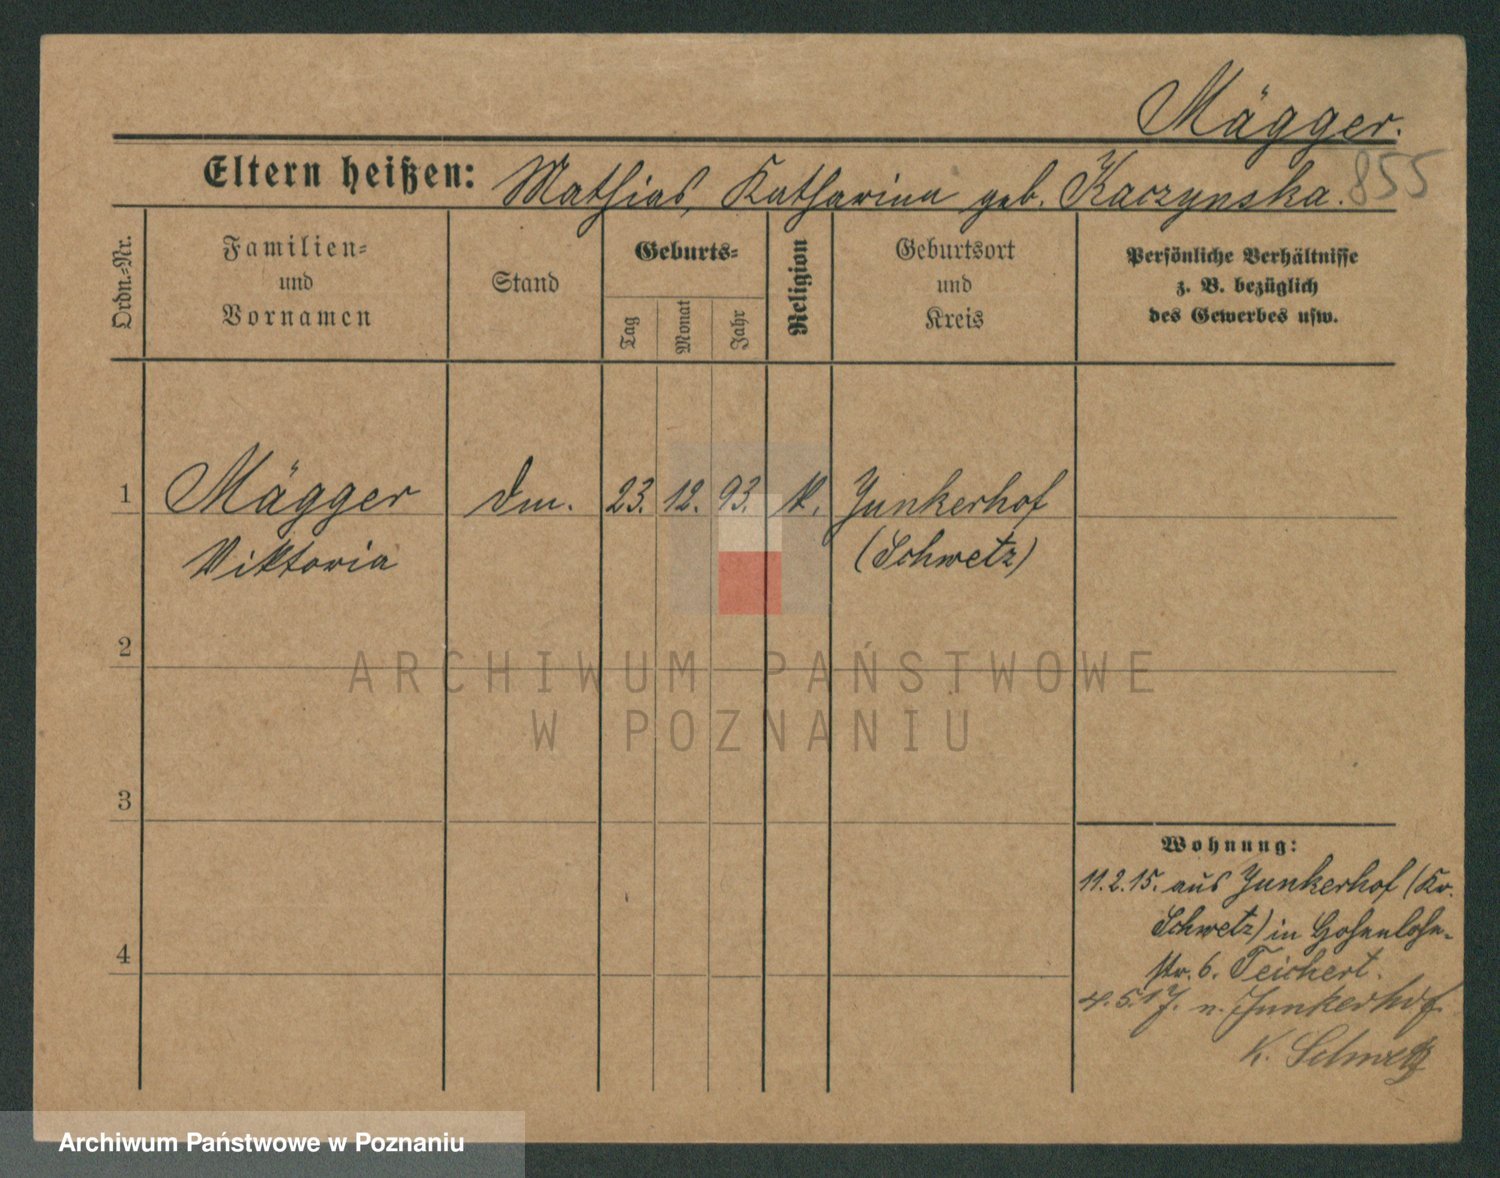 Mägger.
855
Eltern heißen: Mathias, Katharina geb. Kaczynska.
Ordn.=Nr.
Familien=
und
Vornamen
Stand
Geburts=
Tag
Monat
Jahr
Religion
Geburtsort
und
Kreis
Persönliche Verhältnisse
z. B. bezüglich
des Gewerbes usw.
1 Mägger Dm. 23. 12. 93. k. Junkerhof
Viktoria (Schwetz)
2
3
4
Wohnung:
11.2.15. aus Junkerhof (Kr.
Schwetz) in Hohenlohe-
str. 6. Teichert.
4.5.17. n. Junkerhof
K. Schwetz
ARCHIWUM PAŃSTWOWE
W POZNANIU
Archiwum Państwowe w Poznaniu